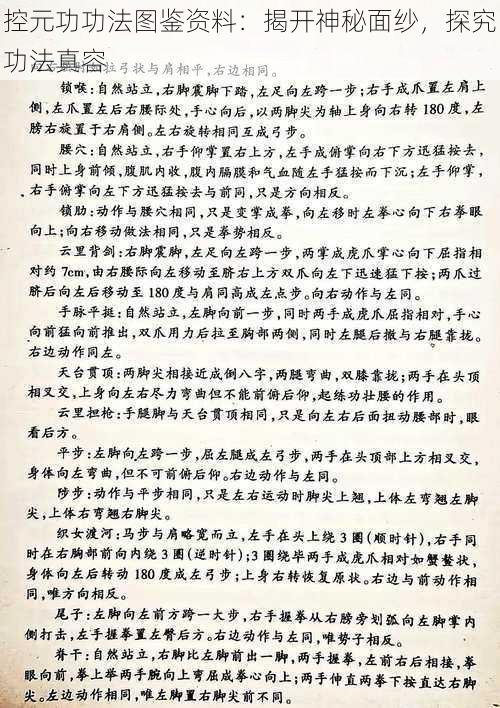 控元功功法图鉴资料：揭开神秘面纱，探究
功法真容
拉弓状与肩相平,右边相同。
锁喉:自然站立,右脚震脚下踏,左足向左跨一步;右手成爪置左肩上
侧,左爪置左后右腰际处,手心向后,以两脚尖为轴上身向右转180度,左
膀右旋置于右肩侧。左右旋转相同互成弓步。
腰穴:自然站立,右手仰掌置右上方,左手成俯掌向右下方迅猛按去,
同时上身前倾,腹肌内收,腹内膈膜和气血随左手猛按而下沉;左手仰掌,
右手俯掌向左下方迅猛按去与前同,只是方向相反。
锁肋:动作与腰穴相同,只是变掌成拳,向左移时左拳心向下右拳眼
向上;向右移动做法相同,只是拳势相反。
云里背剑:右脚震脚,左足向左跨一步,两掌成虎爪掌心向下屈指相
对约7cm,由右腰际向左移动至脐右上方双爪向左下迅速猛下按;两爪过
脐后向左后移动至180度与肩同高成左点步。向右动作与左同。
手脉平挺:自然站立,左脚向前一步,同时两手成虎爪屈指相对,手心
向前猛向前推出,双爪用力后拉至胸部两侧,同时左腿后撤与右腿靠拢。
右边动作同左。
天台贯顶:两脚尖相接近成倒八字,两腿弯曲,双膝靠拢;两手在头顶
相叉交,上身向左右尽力弯曲但不能前俯后仰,起练功壮腰的作用。
云里担枪:手腿脚与天台贯顶相同,只是向左右后面扭动腰部时,眼
看后方。
平步:左脚向左跨一步,屈左腿成左弓步,两手在头顶部上方相叉交,
身体向左弯曲,但不可前俯后仰。右边动作与左同。
陟步:动作与平步相同,只是左右运动时脚尖上翘,上体左弯翘左脚
尖,上体右弯翘右脚尖。
织女渡河:马步与肩略宽而立,左手在头上绕3圈(顺时针),右手同
时在右胸部前向内绕3圈(逆时针);3圈绕毕两手成虎爪相对如蟹螯状,
身体向左后转动180度成左弓步;上身右转恢复原状。右边与前动作相
同,唯方向相反。
尾子:左脚向左前方跨一大步,右手握拳从右膀旁划弧向左脚掌内
侧打击,左手握拳置左臀后方。右边动作与左同,唯势子相反。
脊干:自然站立,右脚比左脚前出一脚,两手握拳,左前右后相接,拳
眼向前,拳上举两手腕向上弯屈成拳心向上;两手伸直两拳下按直达右脚
尖。左边动作相同,唯左脚置右脚尖前不同。